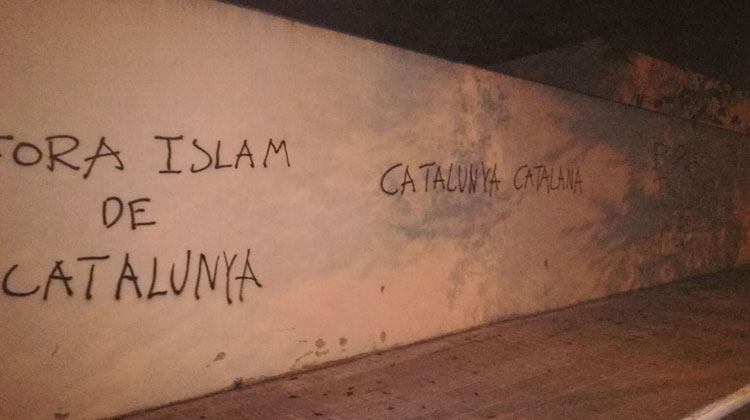 FORA ISLAM
DE
CATALUNYA
CATALUNYA CATALANA